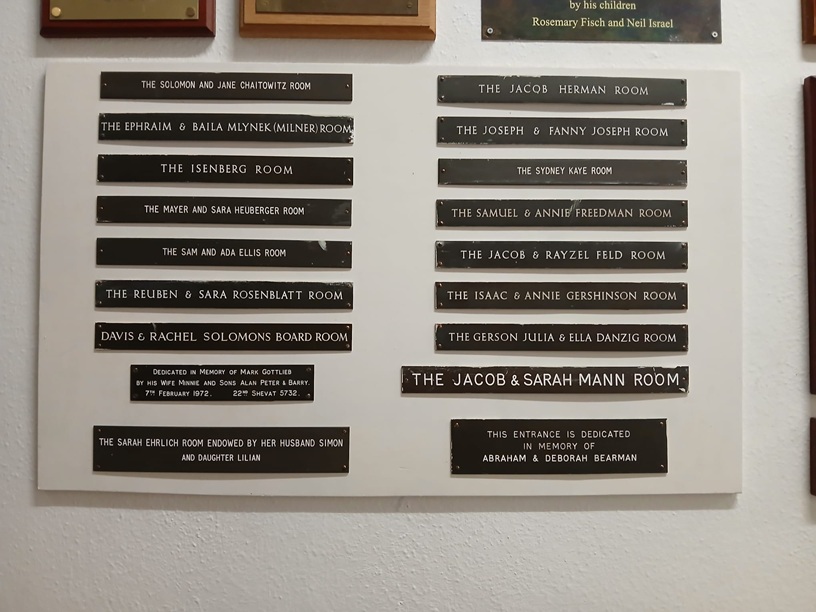 by his children
Rosemary Fisch and Neil Israel
THE SOLOMON AND JANE CHAITOWITZ ROOM
THE EPHRAIM & BAILA MLYNEK (MILNER) ROOM
THE ISENBERG ROOM
THE MAYER AND SARA HEUBERGER ROOM
THE SAM AND ADA ELLIS ROOM
THE REUBEN & SARA ROSENBLATT ROOM
DAVIS & RACHEL SOLOMONS BOARD ROOM
DEDICATED IN MEMORY OF MARK GOTTLIEB
BY HIS WIFE MINNIE AND SONS ALAN PETER & BARRY.
7TH FEBRUARY 1972. 22ND SHEVAT 5732.
THE SARAH EHRLICH ROOM ENDOWED BY HER HUSBAND SIMON
AND DAUGHTER LILIAN
THE JACOB HERMAN ROOM
THE JOSEPH & FANNY JOSEPH ROOM
THE SYDNEY KAYE ROOM
THE SAMUEL & ANNIE FREEDMAN ROOM
THE JACOB & RAYZEL FELD ROOM
THE ISAAC & ANNIE GERSHINSON ROOM
THE GERSON JULIA & ELLA DANZIG ROOM
THE JACOB & SARAH MANN ROOM
THIS ENTRANCE IS DEDICATED
IN MEMORY OF
ABRAHAM & DEBORAH BEARMAN